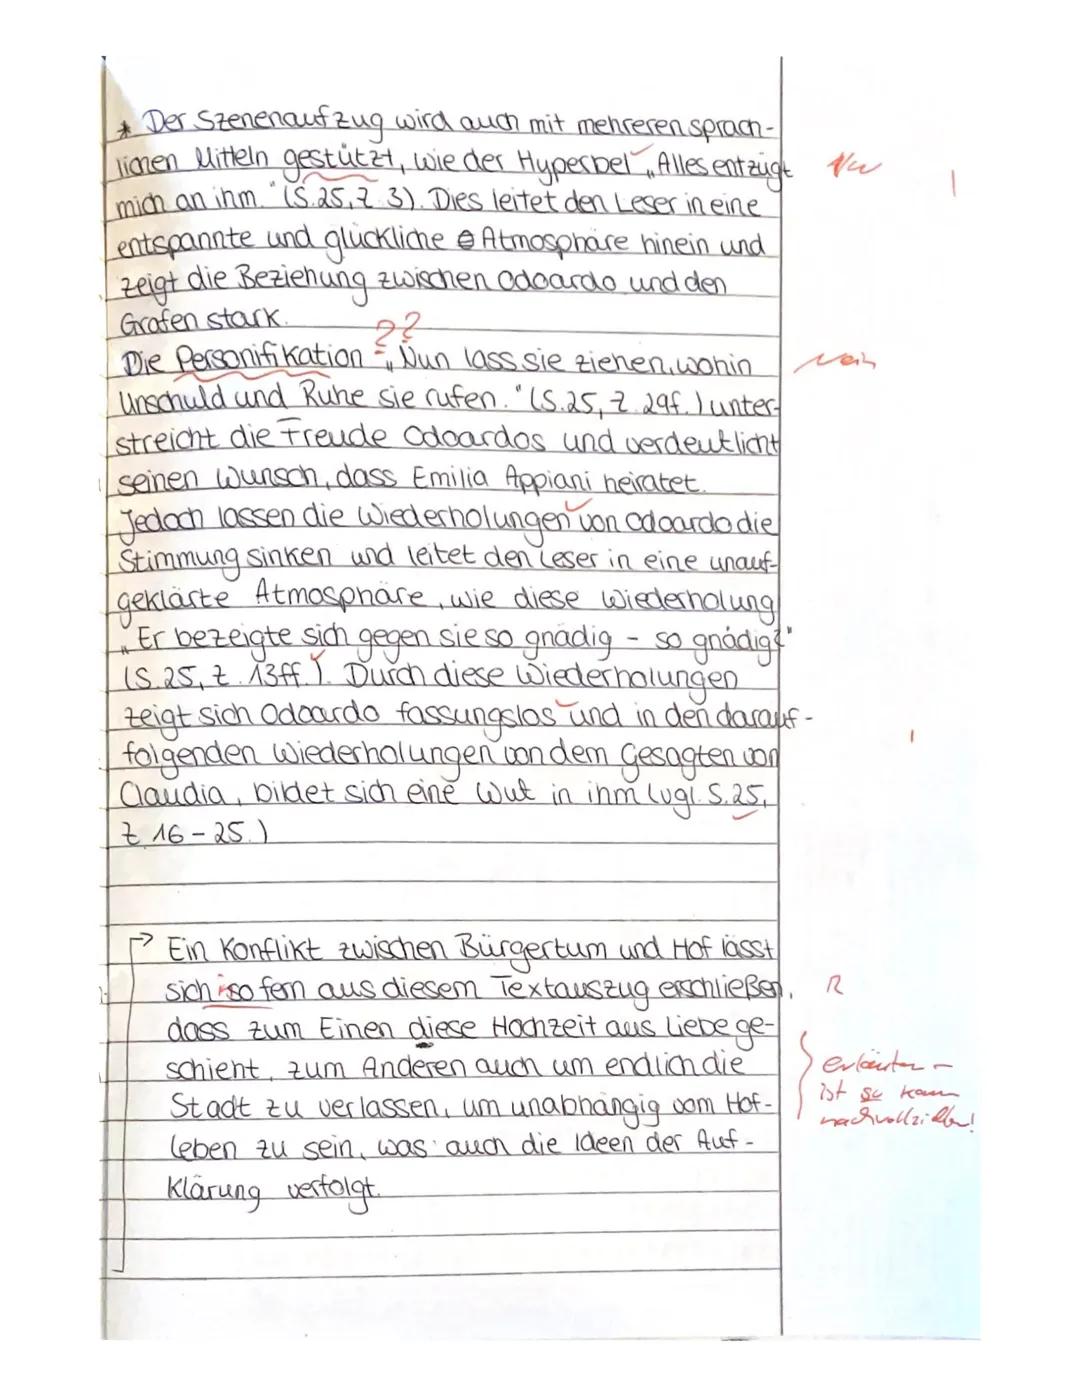 * Der Szenenaufzug wird auch mit mehreren sprach-
lichen Mitteln gestützt, wie der Hyperbel „Alles entzügt
mich an ihm." (S.25, Z. 3). Dies leitet den Leser in eine
entspannte und glückliche Atmosphäre hinein und
zeigt die Beziehung zwischen Odoardo und den
Grafen stark.
??
Die Personifikation „Nun lass sie ziehen, wohin
Nein
Unschuld und Ruhe sie rufen." (S.25, Z. 29f.) unter-
streicht die Freude Odoardos und verdeutlicht
seinen Wunsch, dass Emilia Appiani heiratet.
Jedoch lassen die Wiederholungen von Odoardo die
Stimmung sinken und leitet den Leser in eine unauf-
geklärte Atmosphäre, wie diese Wiederholung
„Er bezeigte sich gegen sie so gnädig - so gnädig?"
(S.25, Z. 13ff.). Durch diese Wiederholungen
zeigt sich Odoardo fassungslos und in den darauf-
folgenden Wiederholungen von dem Gesagten von
Claudia, bildet sich eine Wut in ihm (vgl. S.25,
Z. 16 - 25.)
Ein Konflikt zwischen Bürgertum und Hof lässt
sich iso fern aus diesem Textauszug erschließen,
R
dass zum Einen diese Hochzeit aus Liebe ge-
schieht, zum Anderen auch um endlich die
erläutern -
Stadt zu verlassen, um unabhängig vom Hof-
ist so kaum
nachvollziehbar!
leben zu sein, was auch die Ideen der Auf-
klärung verfolgt.